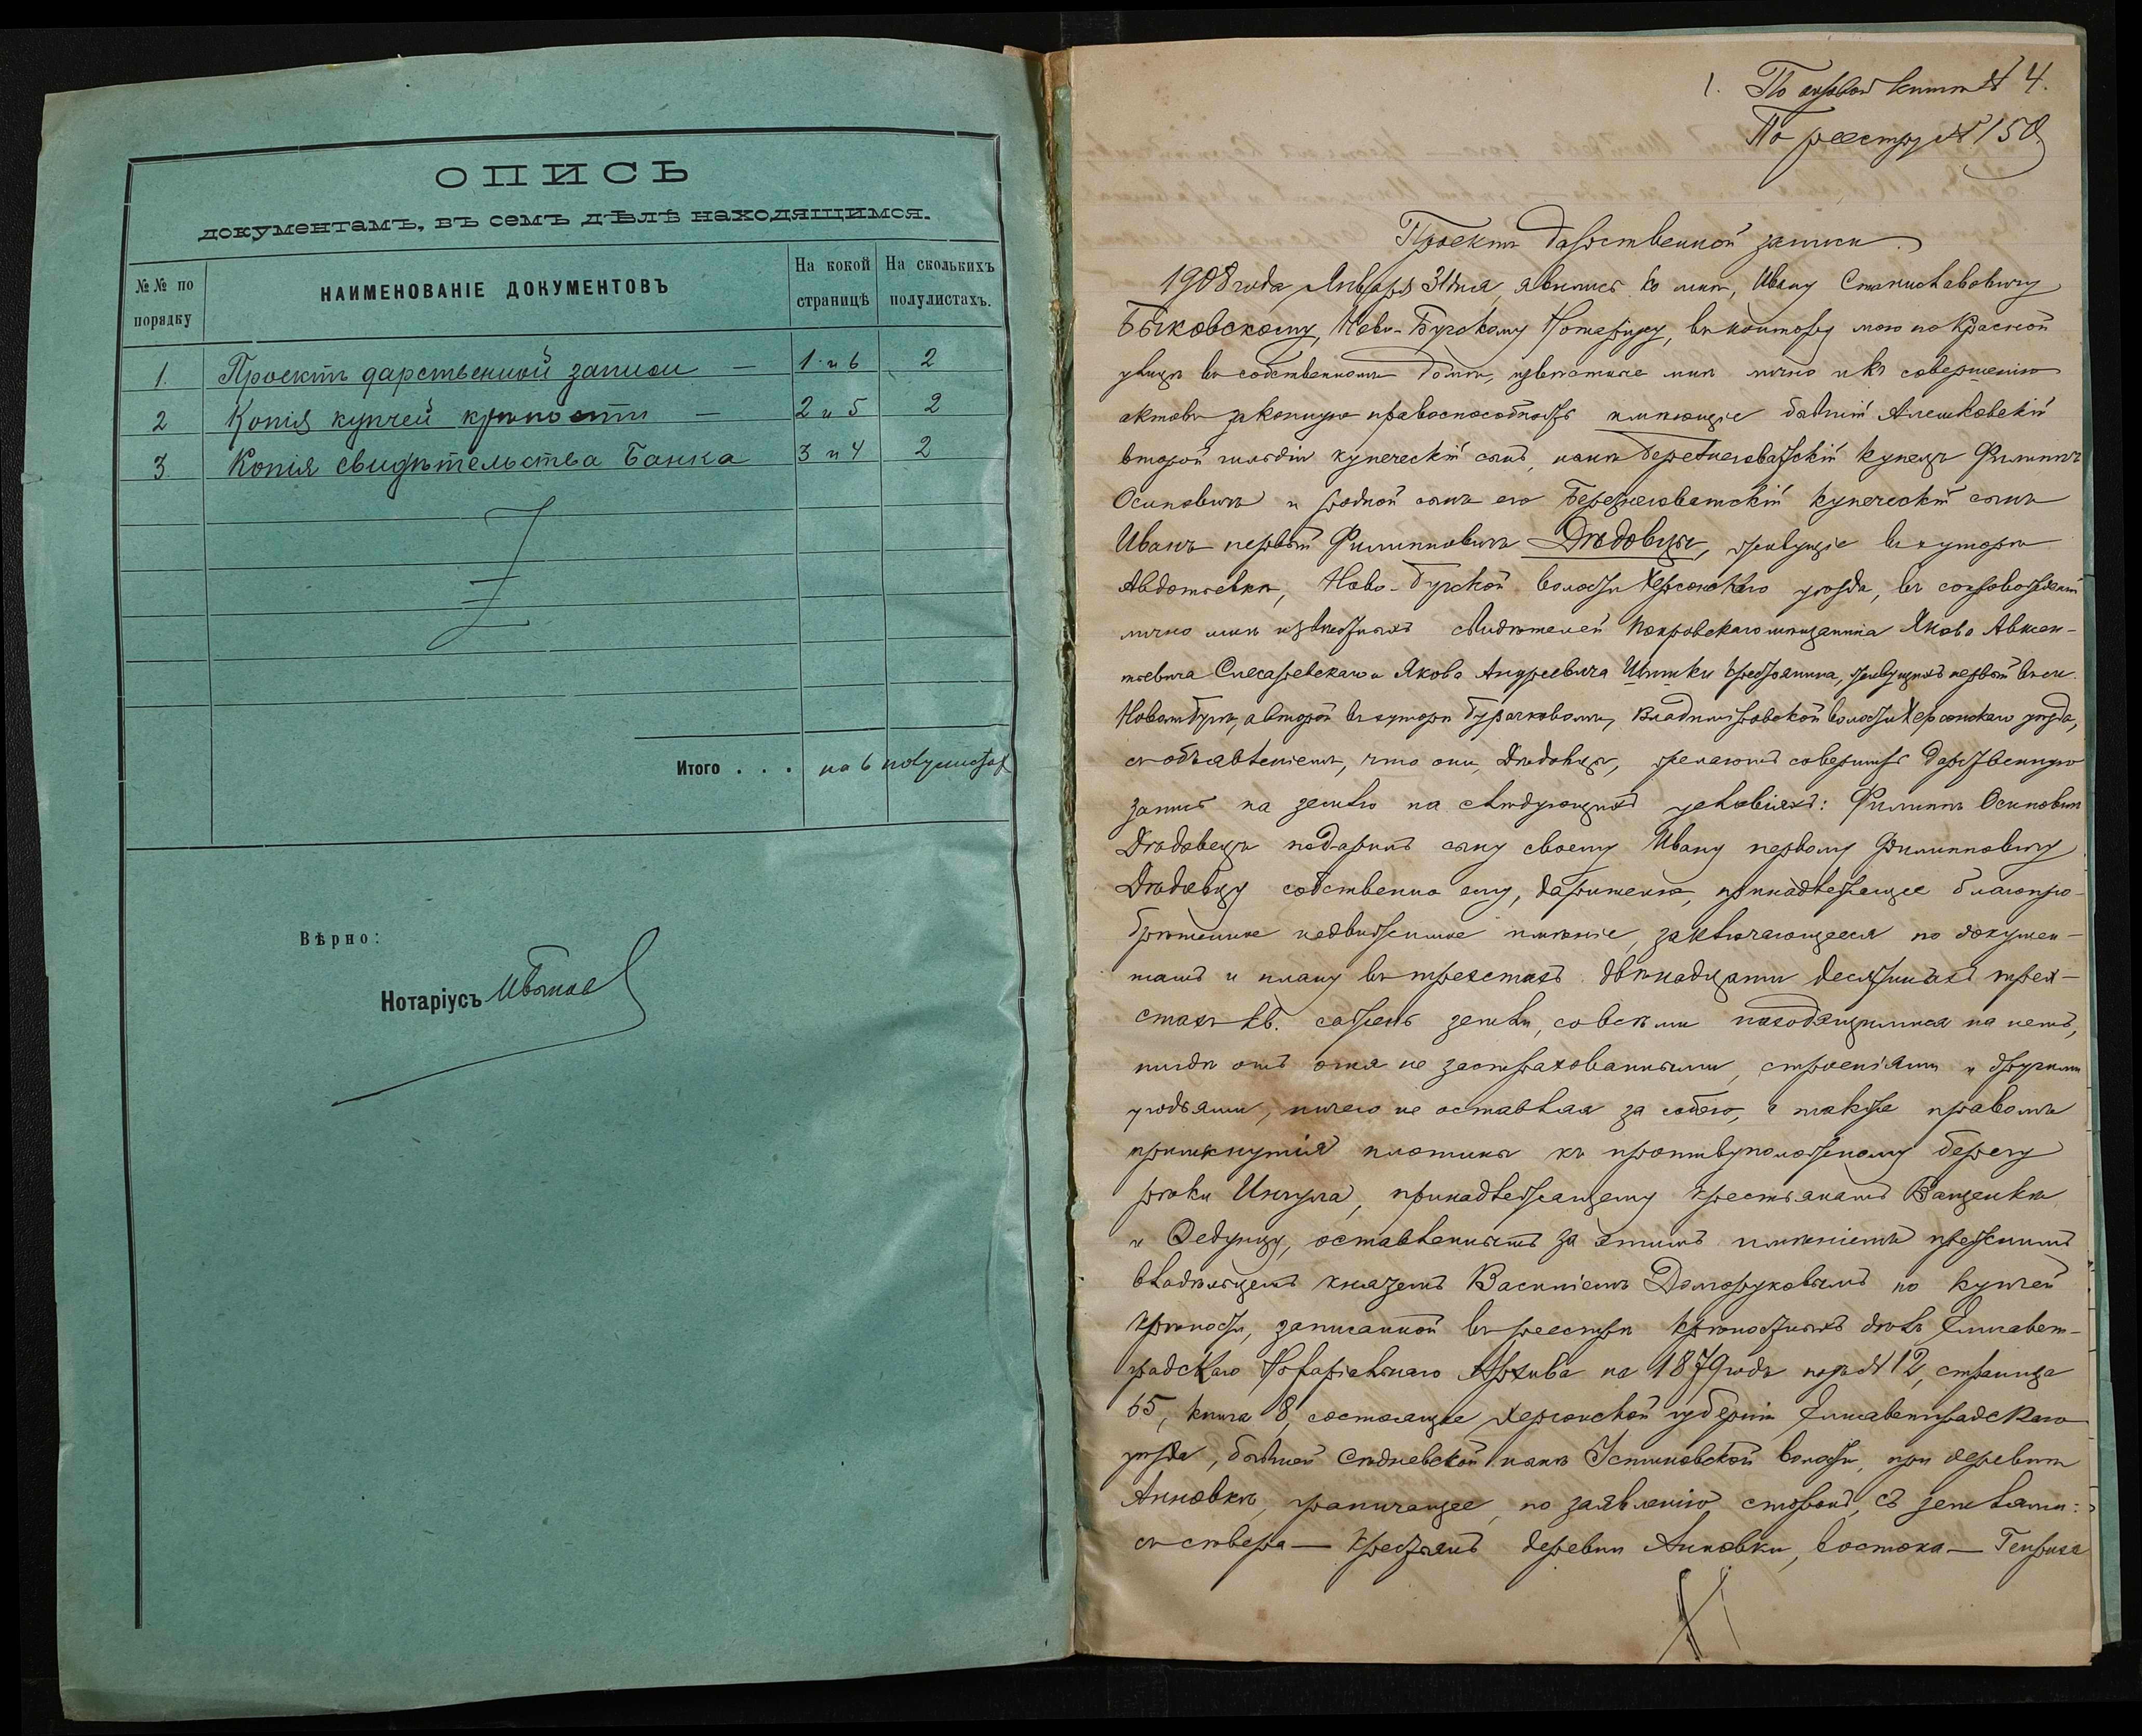 ОПИСЬ
документамъ, въ семъ дѣлѣ находящимся.
№№ по порядку
НАИМЕНОВАНІЕ ДОКУМЕНТОВЪ
На какой страницѣ
На сколькихъ полулистахъ.
1. Проектъ дарственной записи — 1 и 6 2
2 Копія купчей крѣпости — 2 и 5 2
3. Копія свидѣтельства Банка 3 и 4 2
Итого . . . на 6 полулистах
Вѣрно:
Нотаріусъ
1. По актовой книгѣ № 4.
По реестру № 150
Проектъ дарственной записи.
1908 года Января 31 дня, явились ко мнѣ, Ивану Станиславовичу
Быковскому, Ново-Бугскому Нотаріусу, въ контору мою по Красной
улицѣ въ собственномъ домѣ, извѣстные мнѣ лично и къ совершенію
актовъ законную правоспособность имѣющіе бывшій Алешковскій
второй гильдіи купеческій сынъ, нынѣ Березнеговатскій купецъ Филиппъ
Осиповичъ и родной сынъ его Березнеговатскій купеческій сынъ
Иванъ первый Филипповичъ Дѣдовцы, живущіе въ хуторѣ
Авдотьевкѣ, Ново-Бугской волости Херсонскаго уѣзда, въ сопровожденіи
лично мнѣ извѣстныхъ свидѣтелей Покровскаго мѣщанина Якова Авксен-
тьевича Слесаревскаго и Якова Андреевича крестьянина, живущихъ первый въ м.
Новомъ Бугѣ, а второй въ хуторѣ Бурачковомъ, Владимировской волости Херсонскаго уѣзда,
съ объявленіемъ, что они, Дѣдовцы, желаютъ совершить дарственную
запись на землю на слѣдующихъ условіяхъ: Филиппъ Осиповичъ
Дѣдовецъ подарилъ сыну своему Ивану первому Филипповичу
Дѣдовцу собственно ему, дарителю, принадлежащее благопріо-
брѣтенное недвижимое имѣніе, заключающееся по докумен-
тамъ и плану въ трехстахъ двѣнадцати десятинахъ трех-
стахъ кв. сажень земли, со всѣми находящимися на немъ,
нигдѣ отъ огня не застрахованными, строеніями и другими
угодьями, ничего не оставляя за собою, а также правомъ
примкнутія плотины къ противуположному берегу
рѣки Ингула, принадлежащему крестьянамъ Ващенкѣ
и Федунцу, оставленнымъ за этимъ имѣніемъ прежнимъ
владѣльцемъ княземъ Василіемъ Долгоруковымъ по купчей
крѣпости, записанной въ реестрѣ крѣпостныхъ дѣлъ Елисавет-
градскаго Нотаріальнаго Архива на 1879 годъ подъ № 12, страница
65, книга 8, состоящее Херсонской губерніи Елисаветградскаго
уѣзда, бывшей Сѣдневской нынѣ Устиновской волости, при деревнѣ
Анновкѣ, граничащее, по заявленію сторонъ, съ землями:
съ сѣвера — крестьянъ деревни Анновки, востока — Генриха